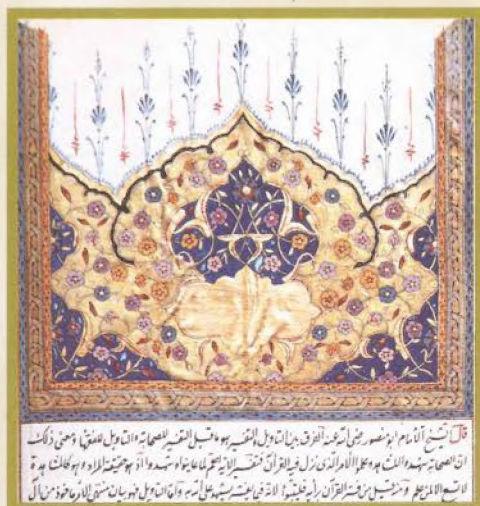 قال الشيخ الامام ابو منصور رضي الله عنه الفرق بين التاويل والتفسير هو ما قيل التفسير للصحابة والتاويل للفقهاء ومعنى ذلك
ان الصحابة شهدوا المشاهد وعلموا الامر الذي نزل فيه القرآن فتفسير الاية لهم لما عاينوا وشهدوا اذ هو حقيقة المراد وهو كالمشاهدة
لا تسمح الا لمن علم ومنه قيل من فسر القرآن برأيه فليتبوأ لانه فيما يفسر يشهد على الله به واما التاويل فهو بيان منتهى الامر ماخوذ من آل